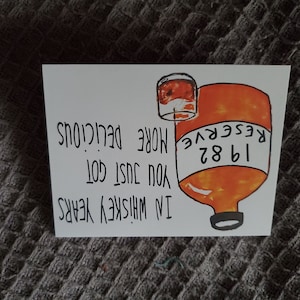 IN WHISKEY YEARS
YOU JUST GOT
MORE DELICIOUS
1982
RESERVE